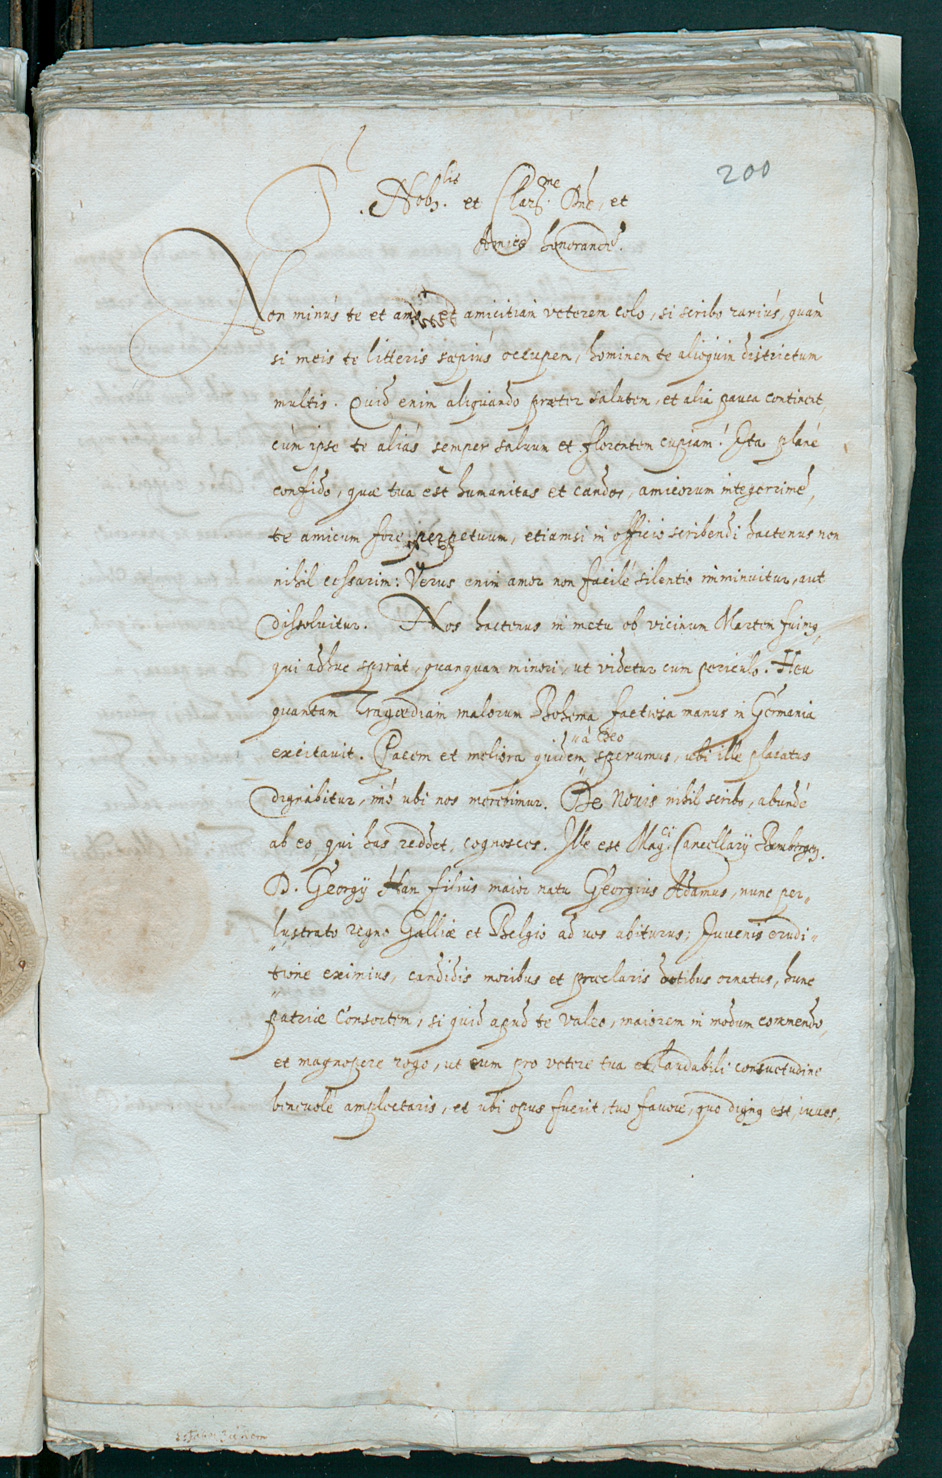 200
Nob.lis et Clar.me Dne, et
Amice honorande.
Non minus te et amo, et amicitiam veterem colo, si scribo rariùs, quam
si meis te litteris sæpius occupem, hominem te alioquin districtum
multis. Quid enim aliquando præter salutem, et alia pauca continent,
cùm ipse te aliàs semper salvum et florentem cupiam! Ita planè
confido, quæ tua est humanitas et candor, amicorum integerrime,
te amicum fore perpetuum, etiamsi in officio scribendi hactenus non
nihil cessarim: Verus enim amor non facilè silentio imminuitur, aut
dissolvitur. Nos hactenus in metu ob vicinum Martem fuimq,
qui adhuc spirat, quanquam minori, ut videtur cum periculo. Heu
quantam Tragœdiam malorum Bohema factiosa manus in Germania
excitavit. Pacem et meliora quidem
à Deo
speramus, ubi ille placatus
dignabitur, imò ubi nos merebimur. De Novis nihil scribo, abundè
ab eo, qui has reddet, cognosces. Ille est Mag.ci Cancellarij Bamberge.
D. Georgij Han filius maior natu Georgius Adamus, nunc per-
lustrato regno Galliæ et Belgio ad vos abiturus; Juvenis erudi-
tione eximius, candidis moribus et præclaris dotibus ornatus, hunc
patriæ consortem, si quid apud te valeo, maiorem in modum commendo,
et magnopere rogo, ut eum pro vetere tua et laudabili consuetudine
benevolè amplectaris, et ubi opus fuerit, tuo favore, quo dignq est, iuves.